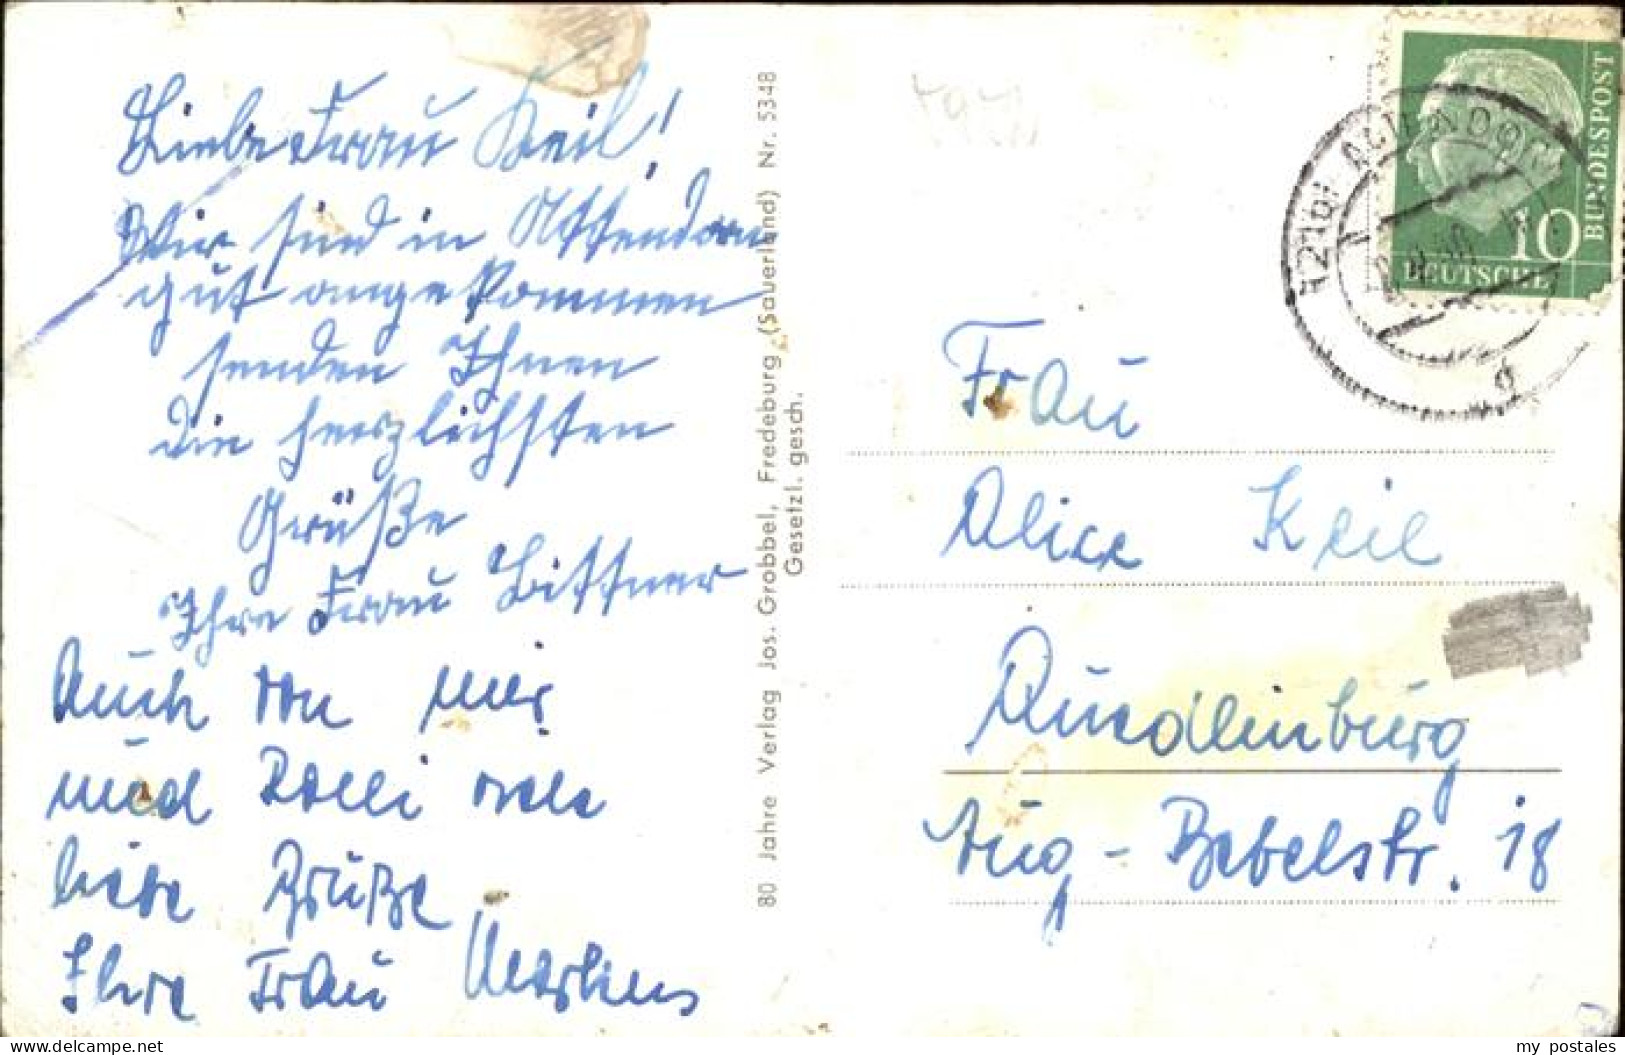 Liebe Frau Keil!
Wir sind in Attendorn
gut angekommen
senden Ihnen
die herzlichsten
Grüße
Ihre Frau Bittner
Auch von mir
und Rolli viele
liebe Grüße
Ihre Frau
80 Jahre Verlag Jos. Grobbel, Fredeburg (Sauerland) Nr. 5348
Gesetzl. gesch.
DEUTSCHE
BUNDESPOST
10
Frau
Alice Keil
Quedlinburg
Aug-Bebelstr. 18
my postales